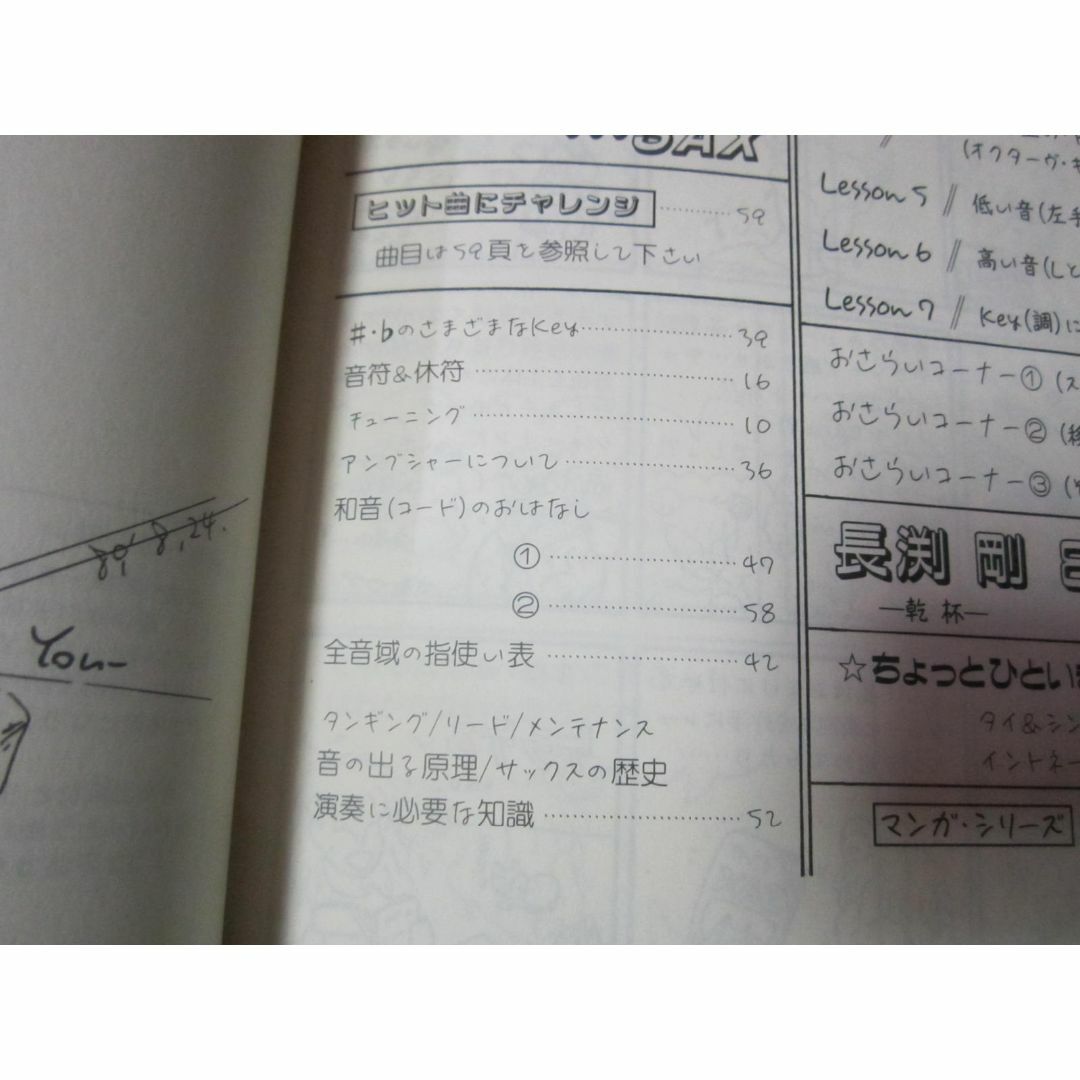 SAX
ヒット曲にチャレンジ ………… 59
曲目は59頁を参照して下さい
♯・♭のさまざまなKey ………… 39
音符&休符 ………… 16
チューニング ………… 10
アンブシャーについて ………… 36
和音(コード)のおはなし
① ………… 47
② ………… 58
全音域の指使い表 ………… 42
タンギング/リード/メンテナンス
音の出る原理/サックスの歴史
演奏に必要な知識 ………… 52
(オクターヴ・キ
Lesson 5 // 低い音(左手
Lesson 6 // 高い音(Lと
Lesson 7 // Key(調)に
おさらいコーナー① (ス
おさらいコーナー②
おさらいコーナー③
長渕 剛
—乾杯—
☆ちょっとひとい
タイ&シン
イントネー
マンガ・シリーズ
89' 8.24.
You-